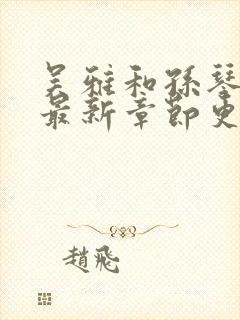 吴雅和孫琴
最新章節史
趙飛